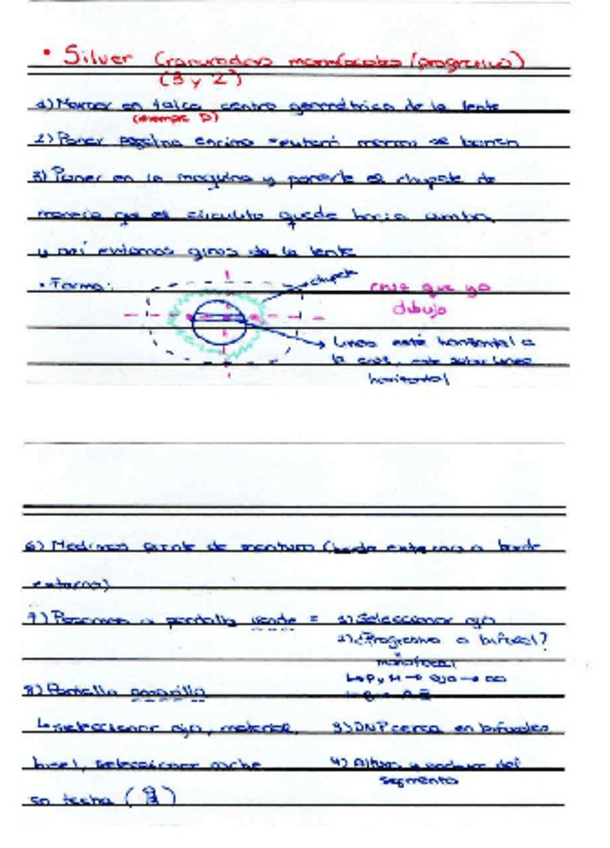 • Silver (ranuradoras monofocales/progresivo)
(3 y 2)
1) Marcar en talco centro geométrico de la lente
2) Poner pegatina encima
3) Poner en la maquina y ponerle el chupete de
manera que el circulito quede hacia arriba,
y así evitamos giros de la lente
• Forma:
chupete
cruz que yo
dibujo
Linea esté horizontal a
la cruz, este sobre linea
horizontal
6) Medimos de montura (borde externo a borde
externo)
7) Pasamos a pantalla verde = 1) Seleccionar ojo
2) ¿Progresivo o bifocal?
monofocal
L> P y M → ojo → ∞
8) Pantalla amarilla
L> seleccionar ojo, material, 3) DNP cerca en bifocales
bisel, seleccionar
4) Altura y anchura del
segmento
en tecla ( )